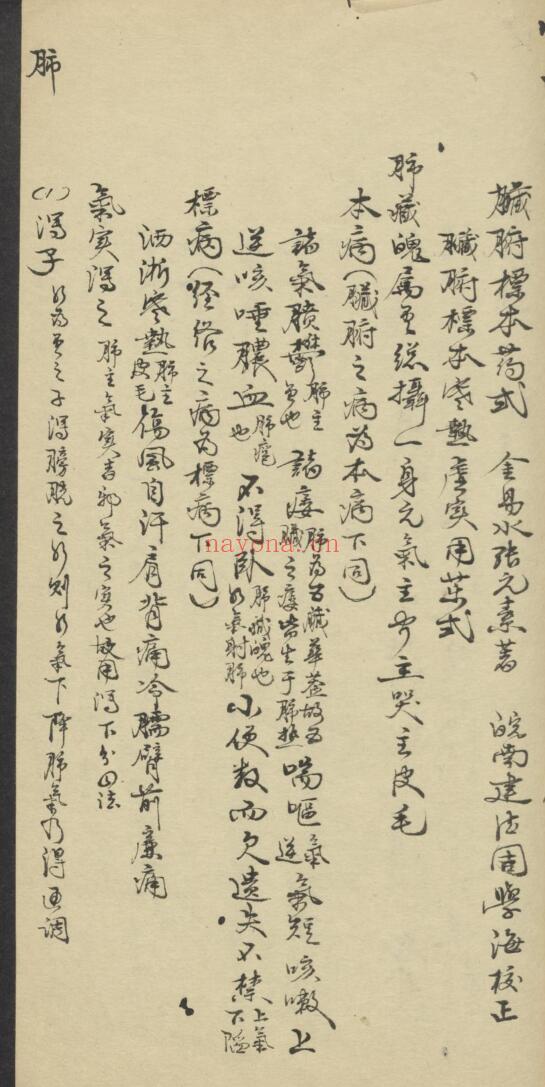 臟腑標本葯式　金易水張元素著　皖南建德周學海校正
臟腑標本寒熱虛實用葯式
肺藏魄屬金總攝一身元氣主聞主哭主皮毛
本病（臟腑之病為本病下同）
諸氣膹鬱肺主氣也諸痿肺為五臟華蓋故五臟之痿皆生于肺熱喘嘔氣逆氣短咳嗽上
逆咳唾膿血肺痿也不得臥肺臟魄也水氣射肺小便數而欠遺失不禁上氣下隘
標病（經絡之病為標病下同）
洒淅寒熱肺主皮毛傷風自汗肩背痛冷臑臂前廉痛
氣實瀉之肺主氣實者邪氣之實也故用瀉下分四法
(1)瀉子水為金之子瀉膀胱之水則水氣下降肺氣乃得通調
肺
nayona.cn